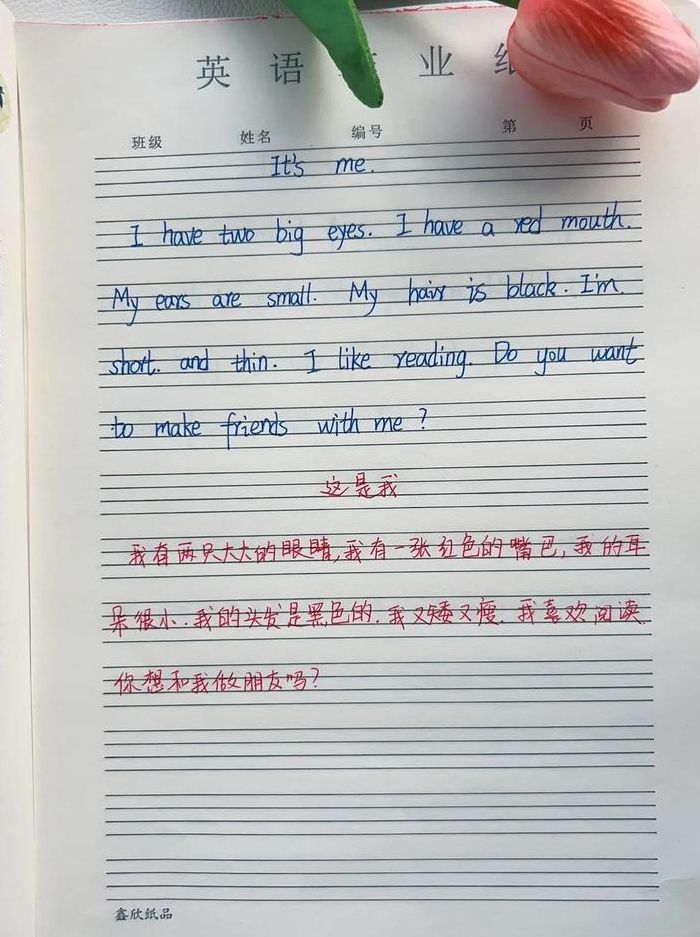 英 语 业
班级 姓名 编号 第 页
It's me.
I have two big eyes. I have a red mouth.
My ears are small. My hair is black. I'm
short. and thin. I like reading. Do you want
to make friends with me?
这是我
我有两只大大的眼睛,我有一张红色的嘴巴,我的耳
朵很小.我的头发是黑色的.我又矮又瘦.我喜欢阅读.
你想和我做朋友吗?
鑫欣纸品